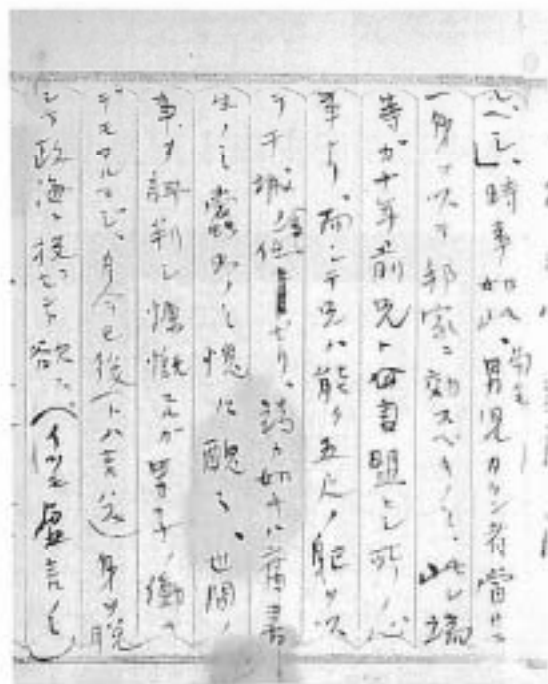 ルベシ」時事如此、苟モ男児タラン者當ニ
一身ヲ以テ邦家ニ効スベキノミ、此レ端
等ガ十年前兄ト盟セシ所ノ心
事ナリ、而シテ兄ハ能ク五尺ノ躯ヲ以
テ干城ノ任ゼリ、端ノ如キハ書
生ノミ蠹魚ノミ愧ハ醜ミ、世間ノ
事ヲ評判シ慷慨スルガ男子ノ働ラ
デモアルマジ、自今已後(トハ言)身ヲ脱
シテ政海ニ投ゼント欲ス、(イツモ虚言ノミ)